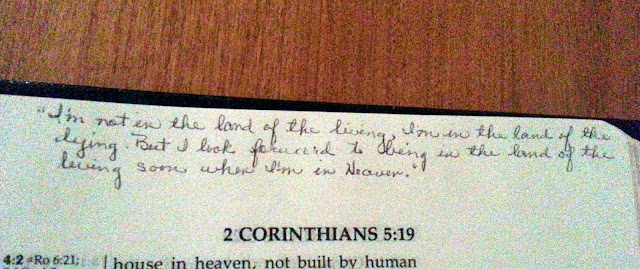 "I'm not in the land of the living, I'm in the land of the
dying. But I look forward to being in the land of the
living soon when I'm in Heaven."
2 CORINTHIANS 5:19
4:2 Ro 6:21;
house in heaven, not built by human